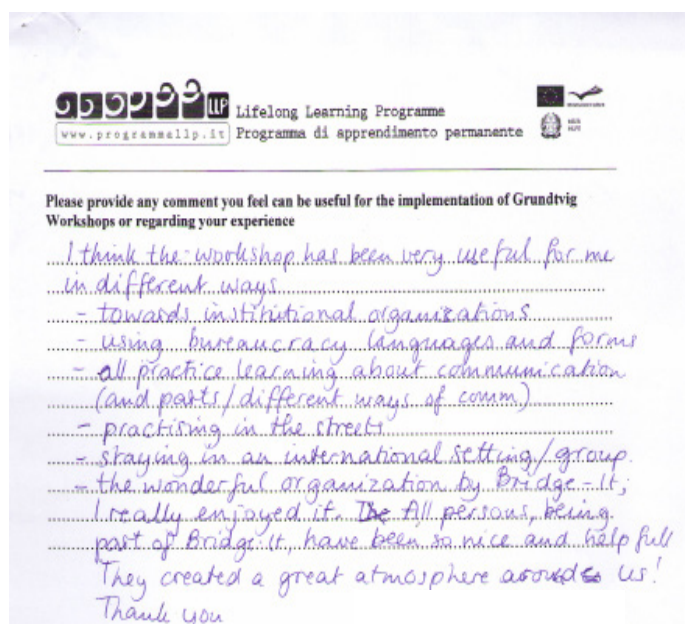 LLP Lifelong Learning Programme
www.programmallp.it Programma di apprendimento permanente
Please provide any comment you feel can be useful for the implementation of Grundtvig
Workshops or regarding your experience
I think the workshop has been very useful for me
in different ways
- towards institutional organizations
- using bureaucracy languages and forms
- all practice learning about communication
(and parts/different ways of comm)
- practising in the streets
- staying in an international setting/group.
- the wonderful organization by Bridge-It;
I really enjoyed it. The All persons, being
part of Bridge-It, have been so nice and help full
They created a great atmosphere around us!
Thank you